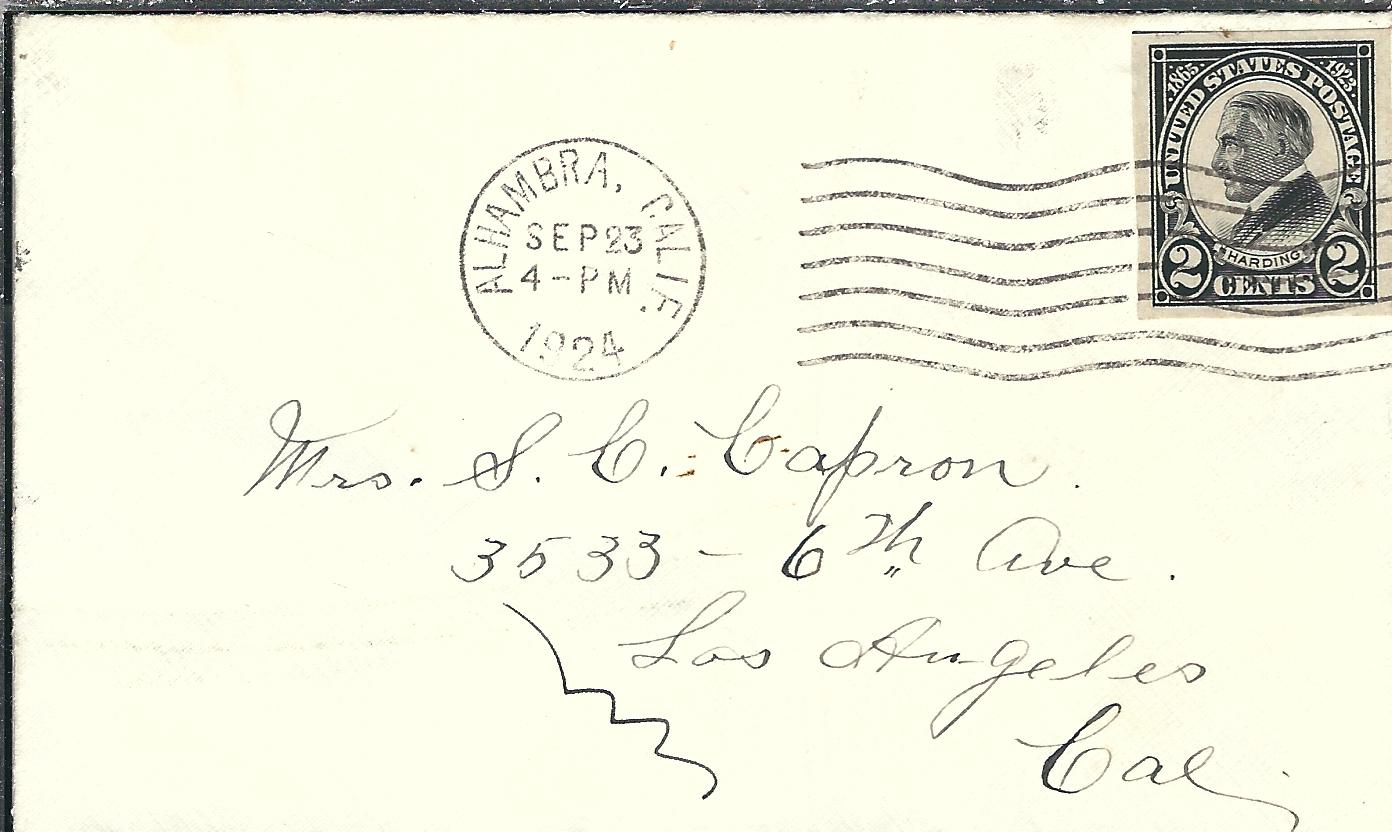 1865. 1923.
UNITED STATES POSTAGE
HARDING
2 CENTS 2
ALHAMBRA, CALIF.
SEP 23
4-PM
1924
Mrs. S. C. Capron.
3533 - 6th Ave.
Los Angeles
Cal.